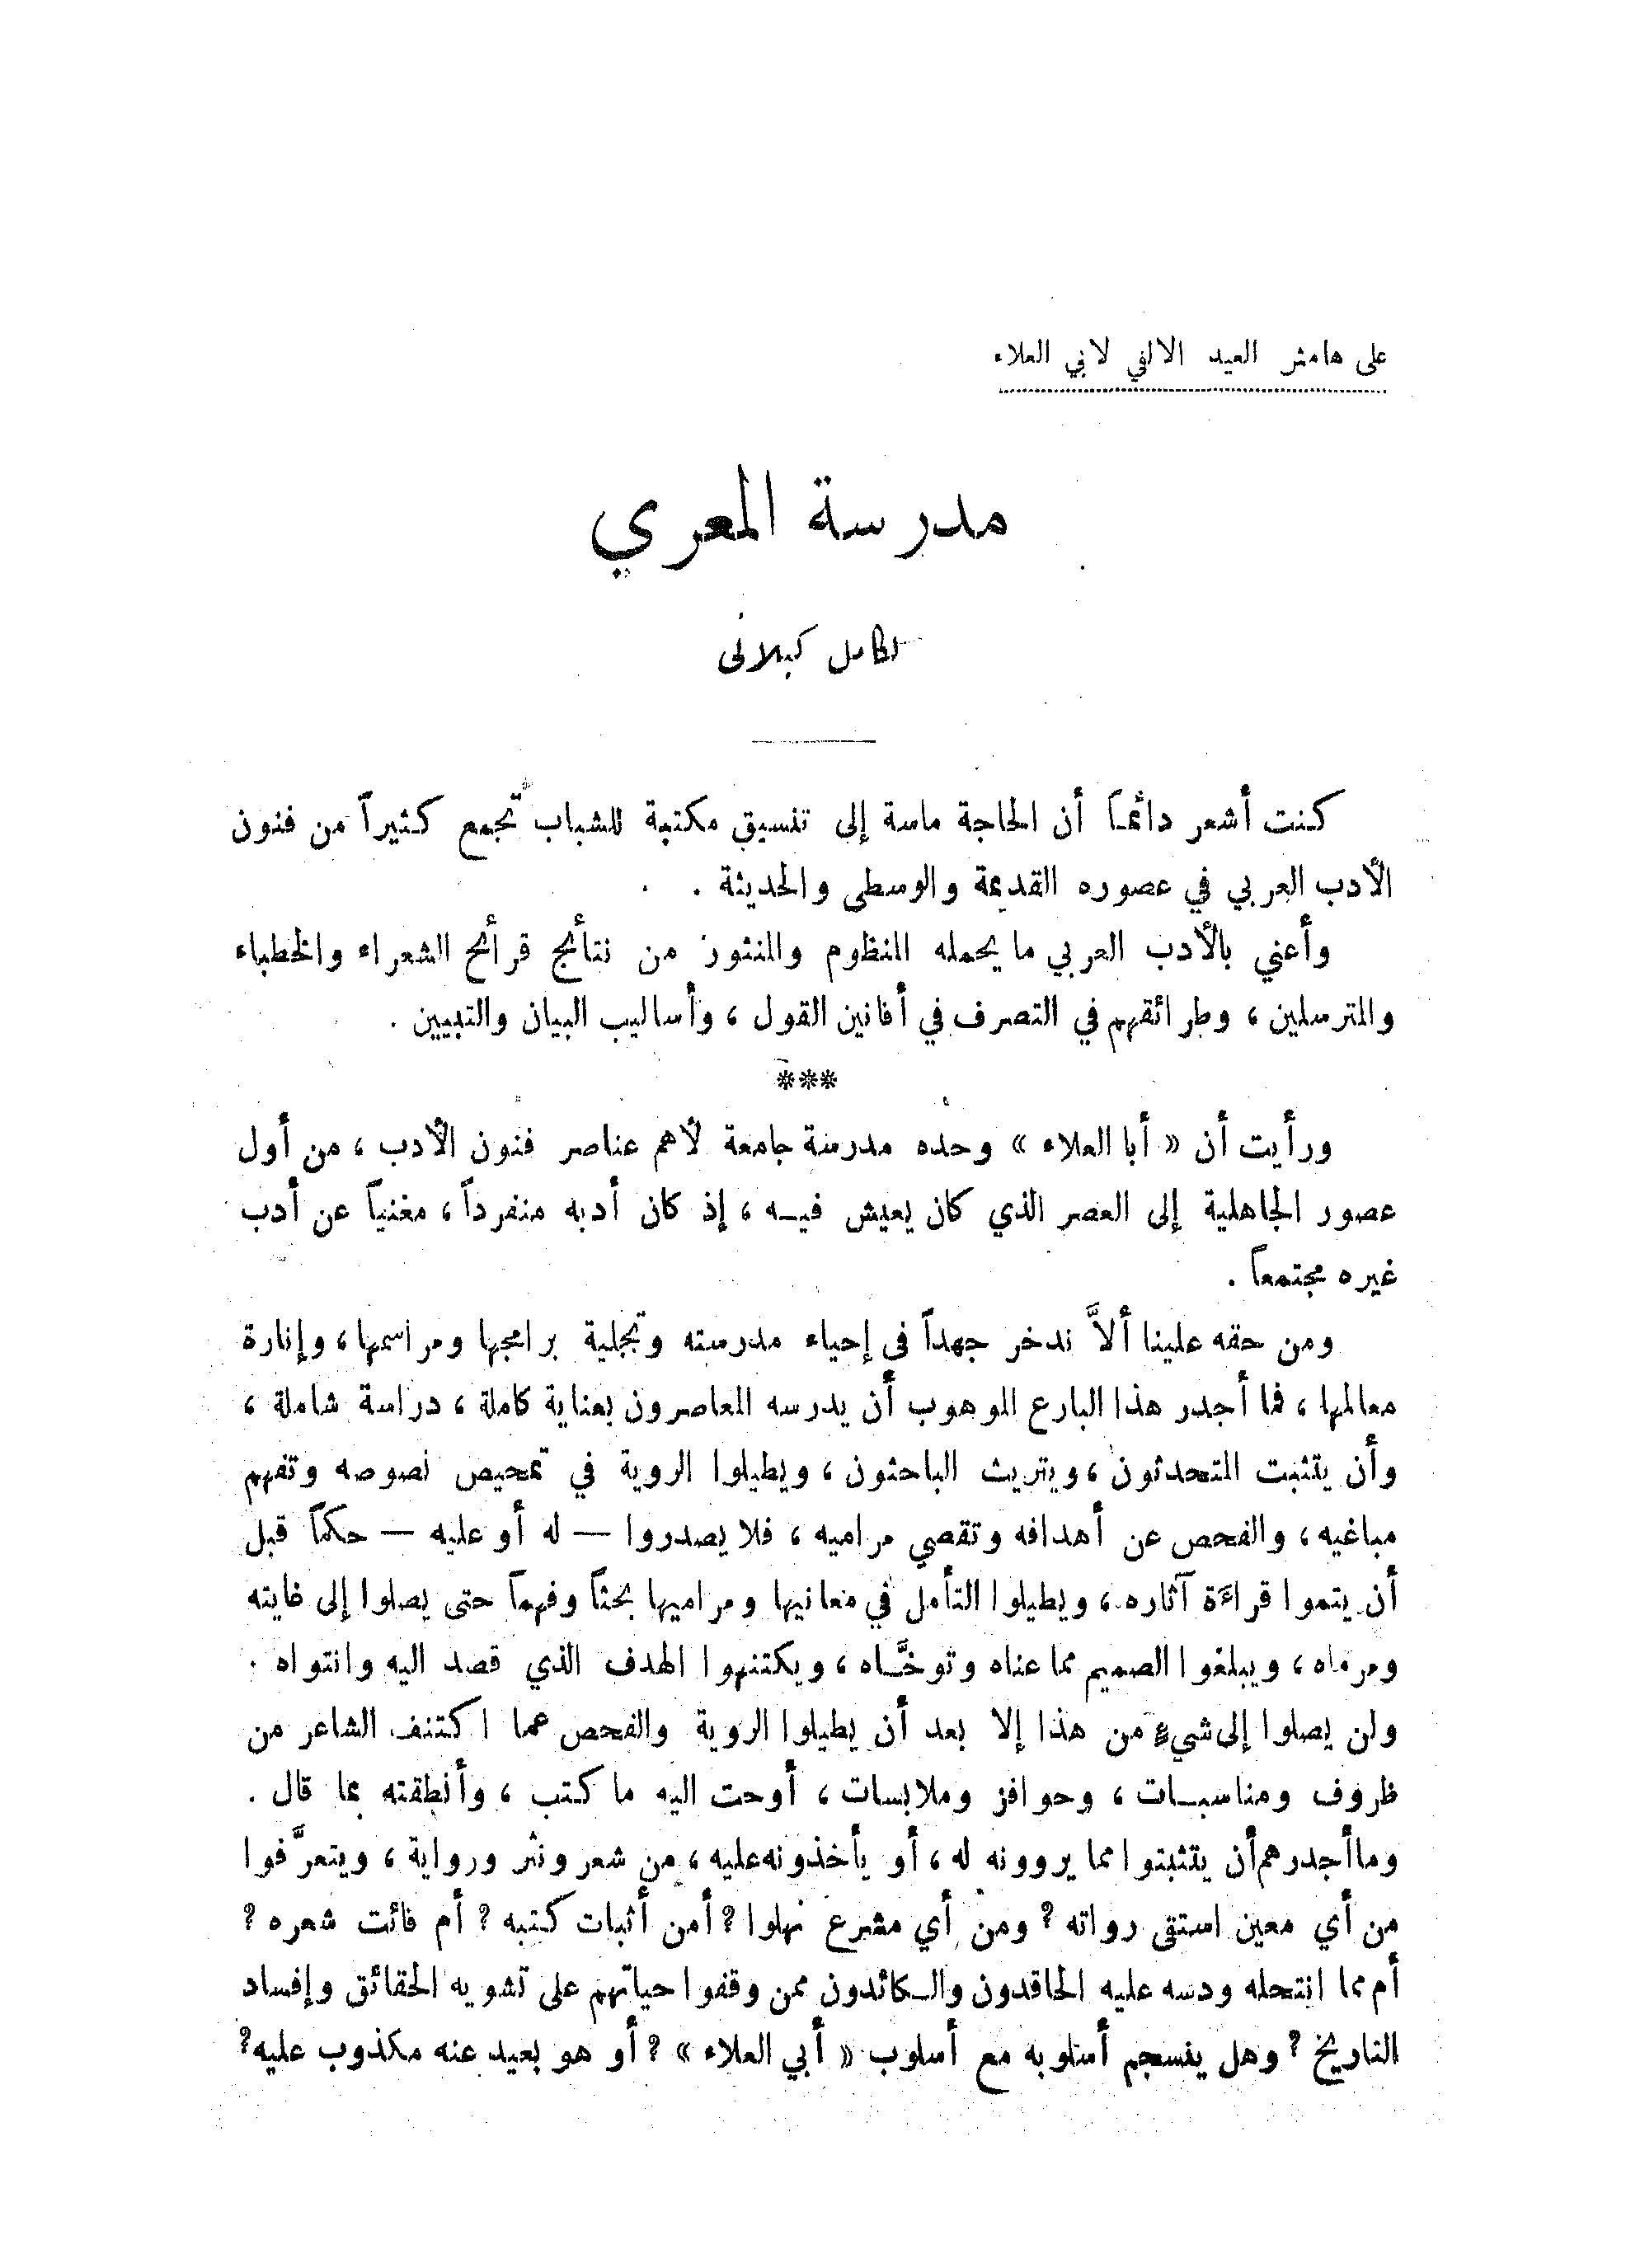 على هامش العيد الالفي لابي العلاء
مدرسة المعري
لكامل كيلانى
كنت أشعر دائماً أن الحاجة ماسة إلى تنسيق مكتبة للشباب تجمع كثيراً من فنون
الأدب العربي في عصوره القديمة والوسطى والحديثة .
وأعني بالأدب العربي ما يحمله المنظوم والمنثور من نتائج قرائح الشعراء والخطباء
والمترسلين ، وطرائقهم في التصرف في أفانين القول ، وأساليب البيان والتبيين .
***
ورأيت أن « أبا العلاء » وحده مدرسة جامعة لأهم عناصر فنون الأدب ، من أول
عصور الجاهلية إلى العصر الذي كان يعيش فيه ، إذ كان أدبه منفرداً ، مغنياً عن أدب
غيره مجتمعاً .
ومن حقه علينا ألاَّ ندخر جهداً فى إحياء مدرسته وتجلية برامجها ومراسمها ، وإنارة
معالمها ، فما أجدر هذا البارع الموهوب أن يدرسه المعاصرون بعناية كاملة ، دراسة شاملة ،
وأن يتثبت المتحدثون ، ويتريث الباحثون ، ويطيلوا الروية في تمحيص نصوصه وتفهم
مباغيه ، والفحص عن أهدافه وتقصي مراميه ، فلا يصدروا — له أو عليه — حكماً قبل
أن يتموا قراءة آثاره ، ويطيلوا التأمل في معانيها ومراميها بحثاً وفهماً حتى يصلوا إلى غايته
ومرماه ، ويبلغوا الصميم مما عناه وتوخَّاه ، ويكتنهوا الهدف الذي قصد اليه وانتواه .
ولن يصلوا إلى شيء من هذا إلا بعد أن يطيلوا الروية والفحص عما اكتنف الشاعر من
ظروف ومناسبات ، وحوافز وملابسات ، أوحت اليه ما كتب ، وأنطقته بما قال .
وما أجدرهم أن يتثبتوا مما يروونه له ، أو يأخذونه عليه ، من شعر ونثر ورواية ، ويتعرَّفوا
من أي معين استقى رواته ؟ ومن أي مشرع نهلوا ؟ أمن أثبات كتبه ؟ أم فائت شعره ؟
أم مما انتحله ودسه عليه الحاقدون والكائدون ممن وقفوا حياتهم على تشويه الحقائق وإفساد
التاريخ ؟ وهل ينسجم أسلوبه مع أسلوب « أبي العلاء » ؟ أو هو بعيد عنه مكذوب عليه ؟